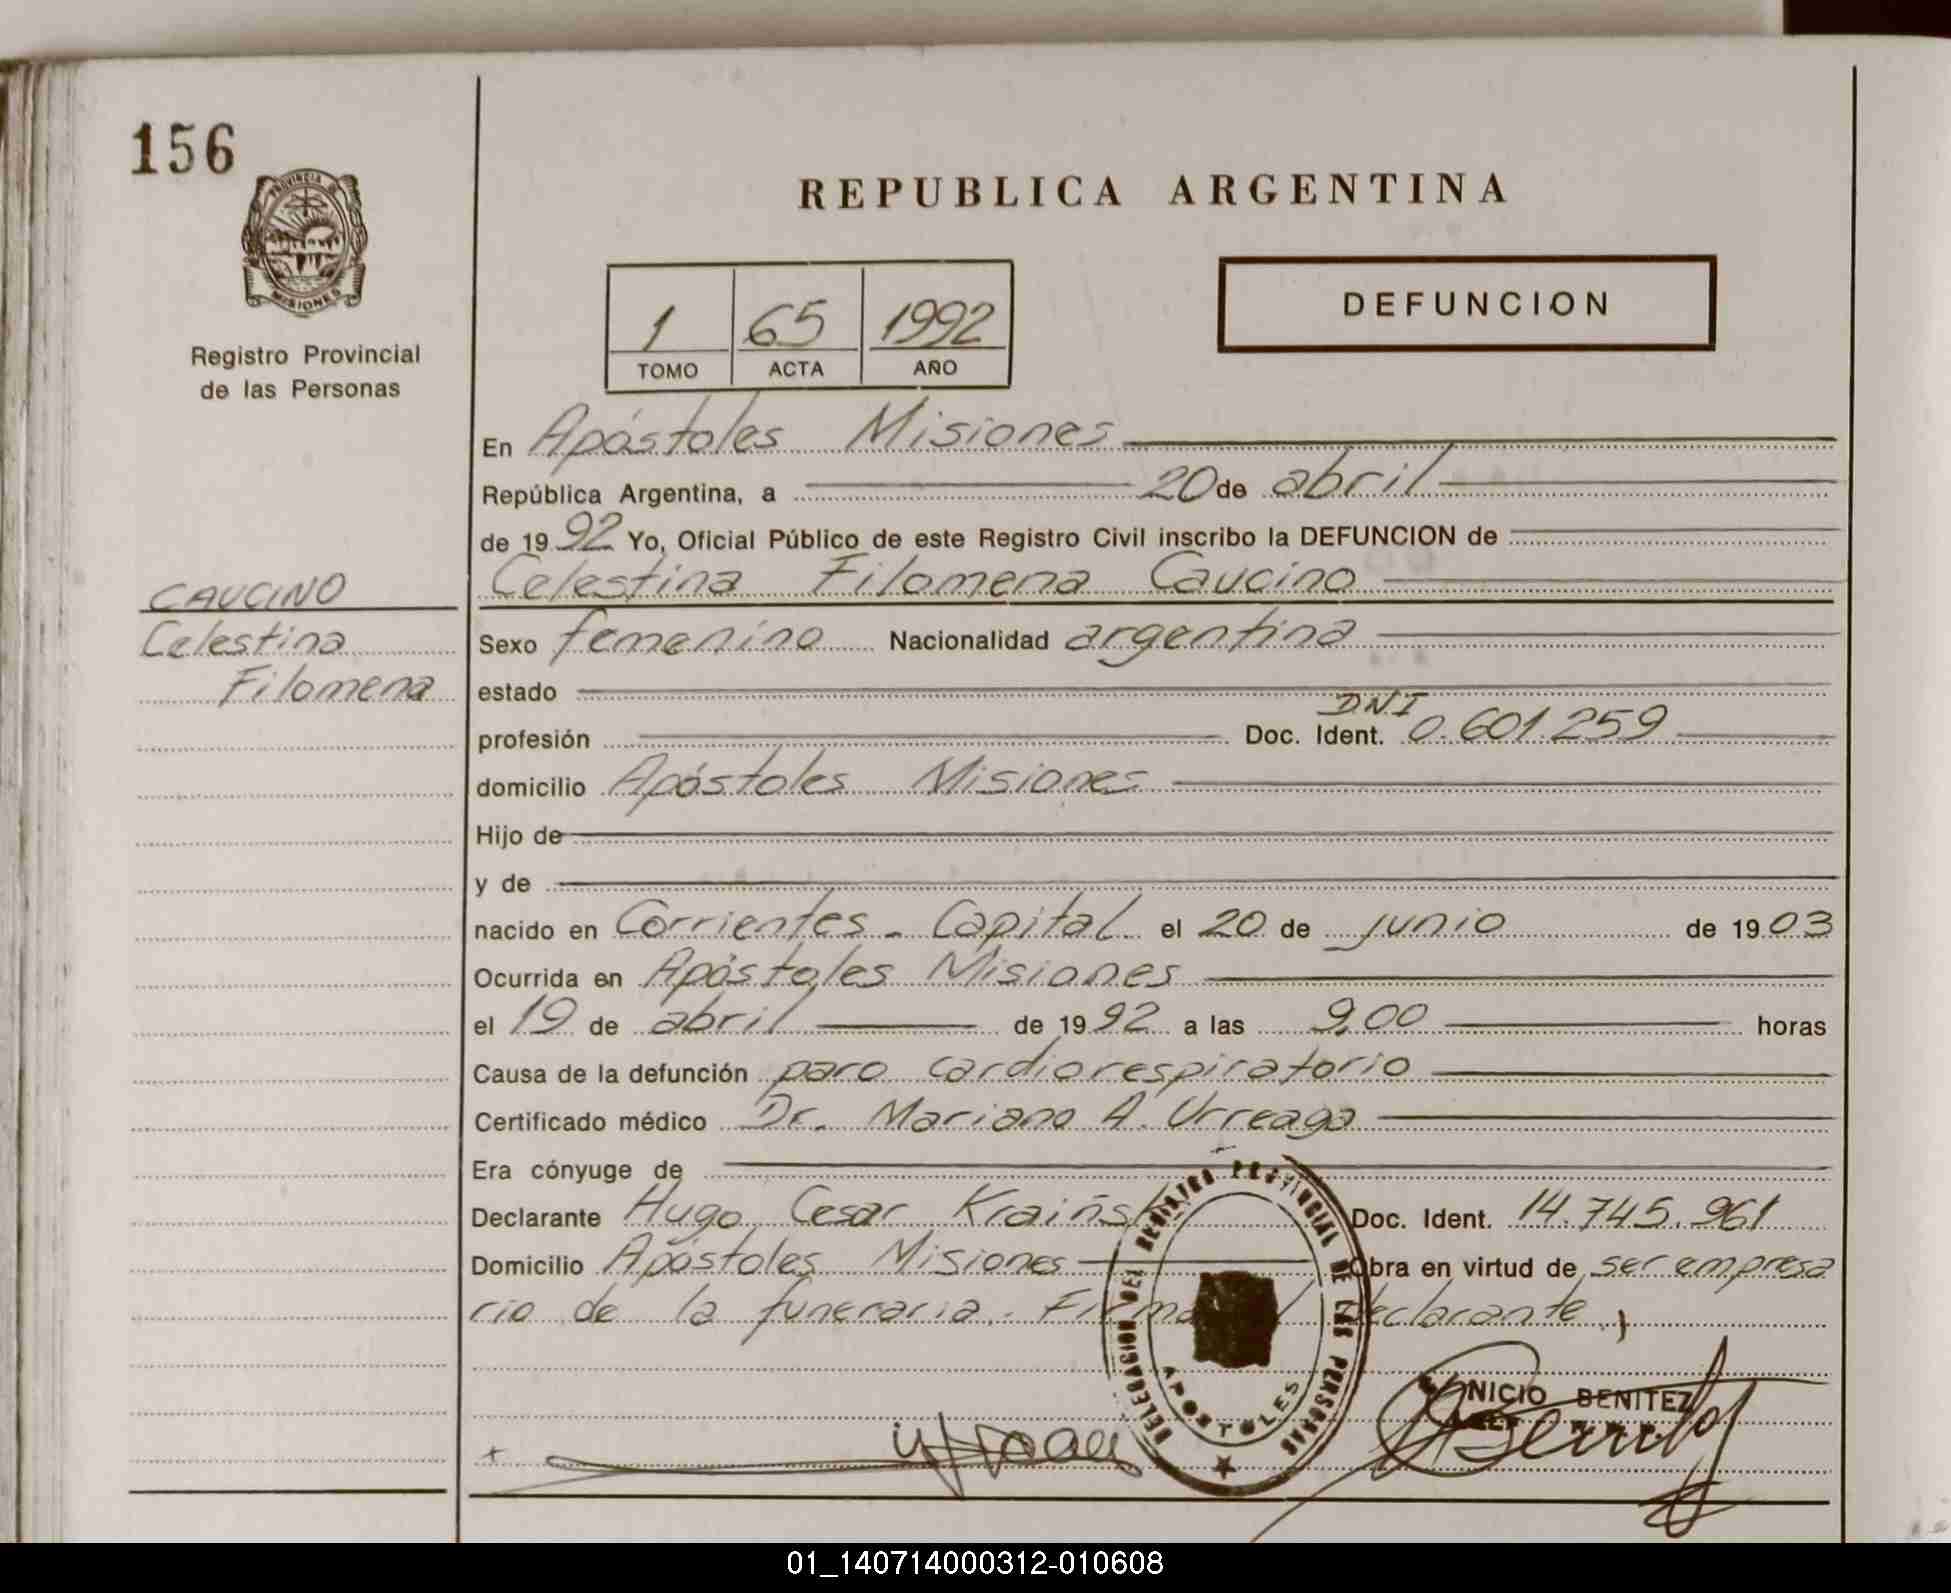 156
PROVINCIA DE
MISIONES
Registro Provincial
de las Personas
REPUBLICA ARGENTINA
1 65 1992
TOMO ACTA AÑO
DEFUNCION
En Apóstoles Misiones
República Argentina, a 20 de abril
de 1992 Yo, Oficial Público de este Registro Civil inscribo la DEFUNCION de
CAUCINO
Celestina
Filomena
Celestina Filomena Caucino
Sexo femenino Nacionalidad argentina
estado
profesión Doc. Ident. D.N.I 0.601.259
domicilio Apóstoles Misiones
Hijo de
y de
nacido en Corrientes - Capital el 20 de junio de 1903
Ocurrida en Apóstoles Misiones
el 19 de abril de 1992 a las 9,00 horas
Causa de la defunción paro cardiorespiratorio
Certificado médico Dr. Mariano A. Urreaga
Era cónyuge de
Declarante Hugo Cesar Doc. Ident. 14.745.961
Domicilio Apóstoles Misiones Obra en virtud de ser empresa
rio de la funeraria. Firma declarante
DELEGACION DEL REGISTRO PROVINCIAL DE LAS PERSONAS
APOSTOLES
BENITEZ
01_140714000312-010608